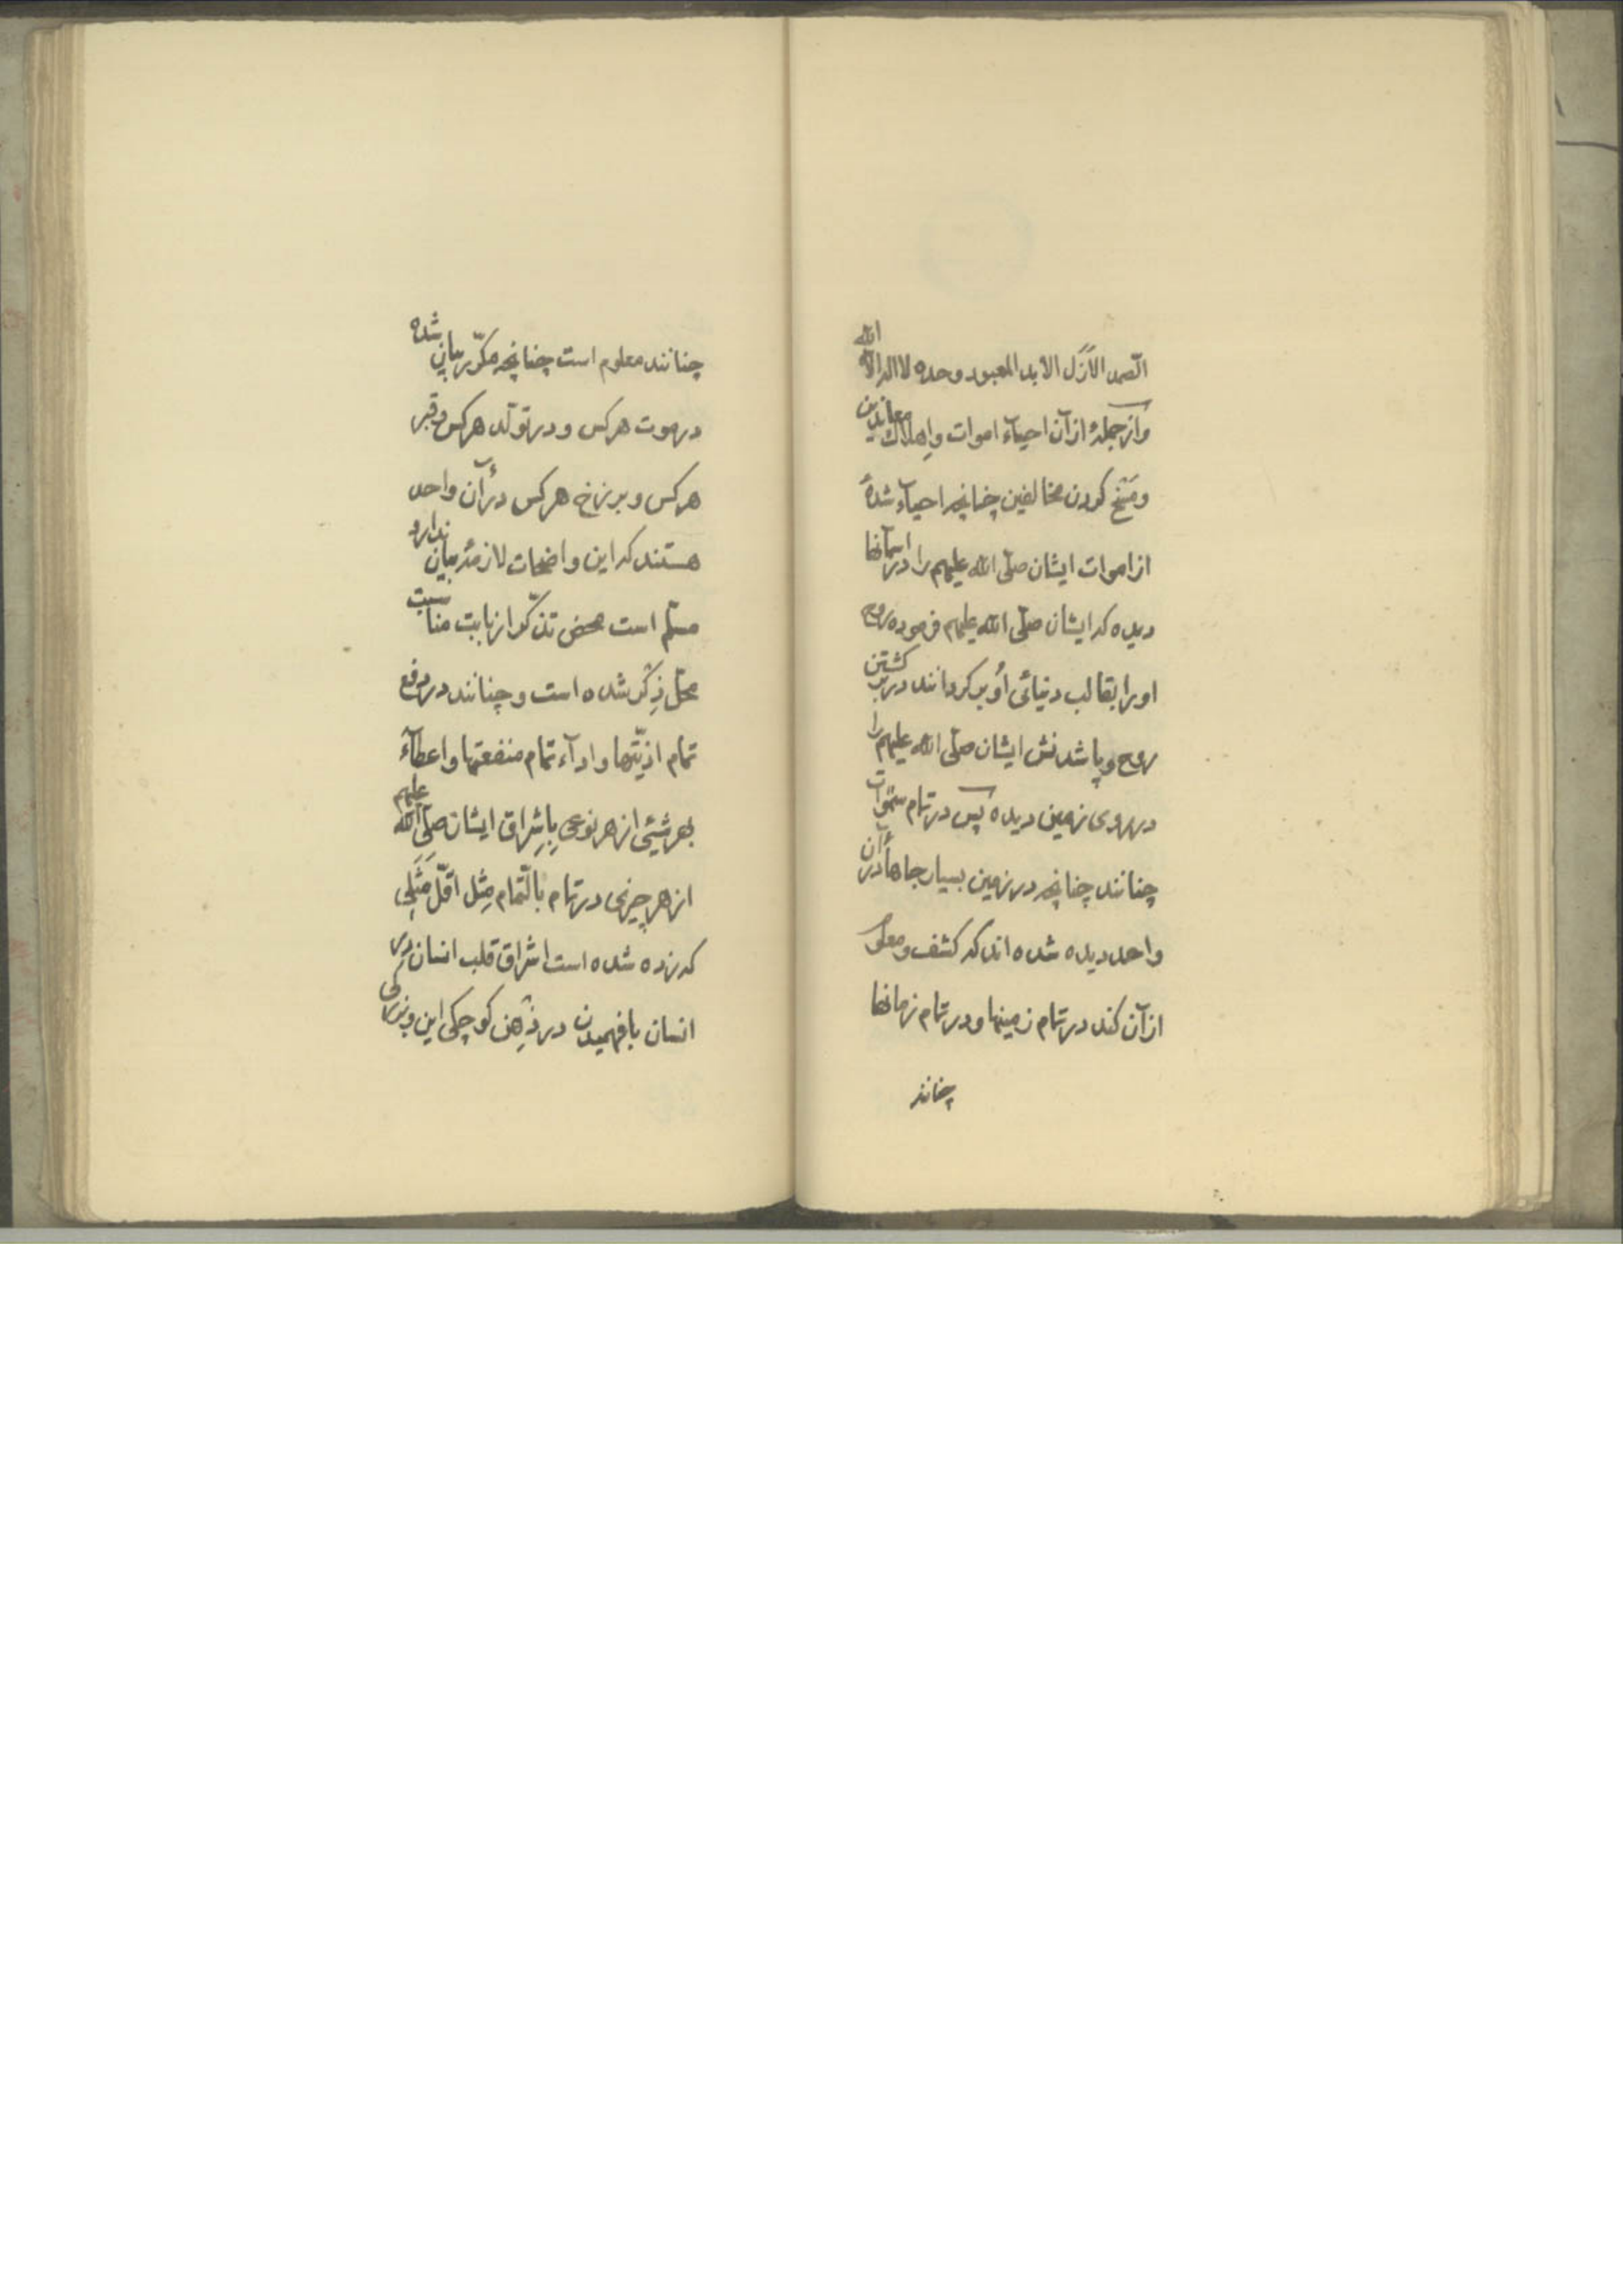 الصّمد الاَزَل الابد المعبود وحده لا اله الا الله
و از جملهٔ از آن احیاء اموات و اِهلاک معاندین
و مَسْخ کردن مخالفین چنانچه احیاء شدهٔ
از اموات ایشان صلّی الله علیهم را در آسمانها
دیده که ایشان صلّی الله علیهم فرموده روح
او را بقالب دنیائی اُو برگردانند در برگشتن
روح و پا شدنش ایشان صلّی الله علیهم را
در روی زمین دیده پس در تمام سَمٰوات
چنانند چنانچه در زمین بسیار جاها در آن
واحد دیده شده اند که کشف و معلوم
از آن کند در تمام زمینها و در تمام زمانها
چنانند
چنانند معلوم است چنانچه مکرّر بیان شده
در موت هرکس و در تولّد هرکس و قبر
هرکس و برزخ هرکس در آن واحد
هستند که این واضحات لازمهٔ بیان ندارد
مسلّم است محض تذکّر از بابت مناسبت
محلّ ذِکر شده است و چنانند در رفع
تمام اذیّتها و ادآء تمام منفعتها و اعطآء
بهر شیئی از هر نوعی بِاِشراق ایشان صلّی الله علیهم
از هر چیزی در تمام بالتّمام مِثل اقلّ مَثَلِی
که زده شده است اشراق قلب انسان در
انسان با فهمیدن در ذِهن کوچکی این و بزرگی